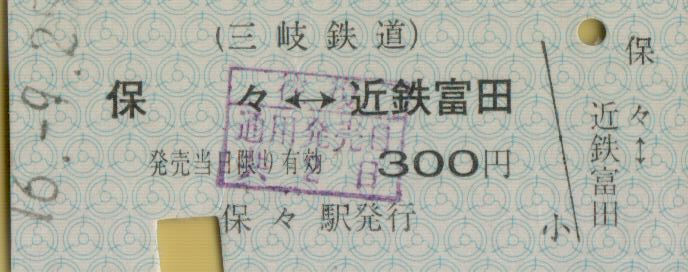 (三岐鉄道)
保々↔近鉄富田
通用発売日
共2日
発売当日限り有効 300円
保々駅発行
16.-9.2
保々↔近鉄富田
小